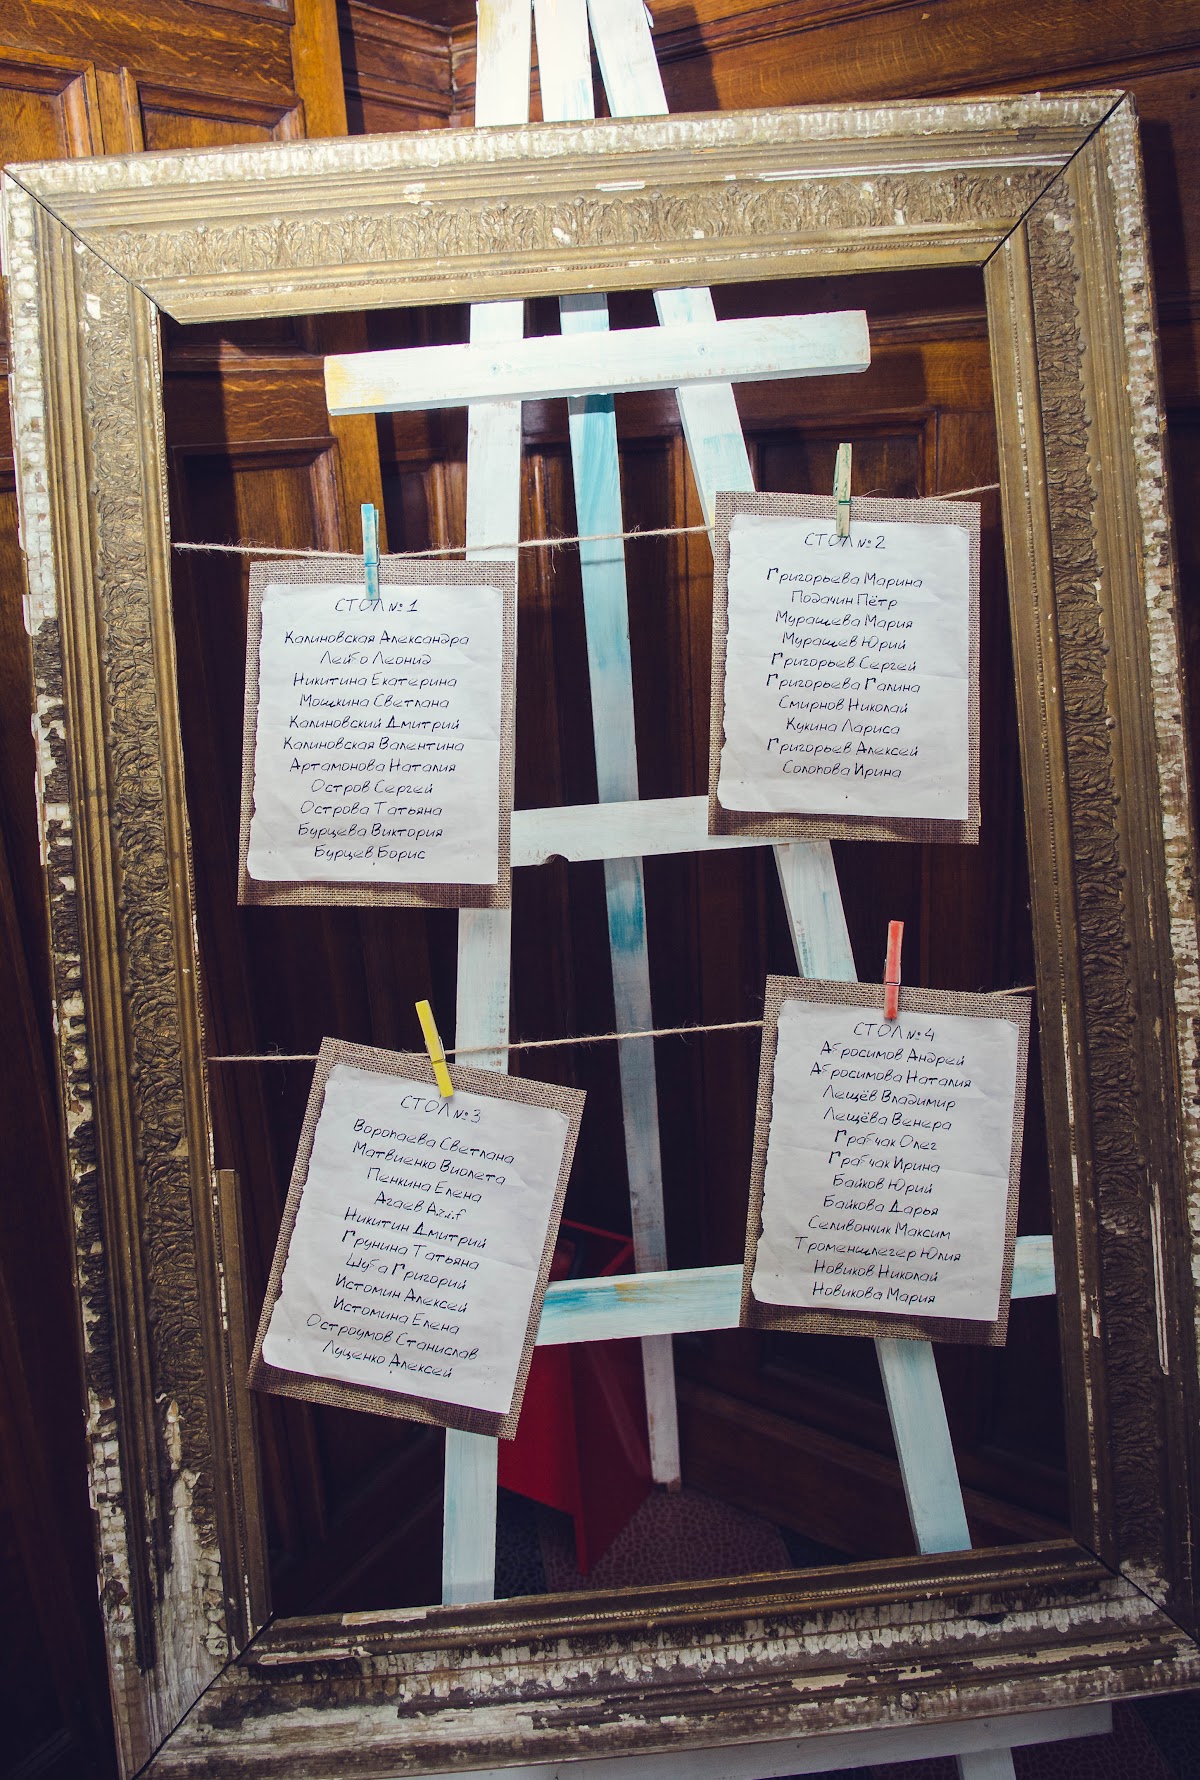 СТОЛ №1
Калиновская Александра
Лейбо Леонид
Никитина Екатерина
Мошкина Светлана
Калиновский Дмитрий
Калиновская Валентина
Артамонова Наталия
Остров Сергей
Острова Татьяна
Бурцева Виктория
Бурцев Борис
СТОЛ №2
Григорьева Марина
Подачин Пётр
Мурашева Мария
Мурашев Юрий
Григорьев Сергей
Григорьева Галина
Смирнов Николай
Кукина Лариса
Григорьев Алексей
Солопова Ирина
СТОЛ №3
Воропаева Светлана
Матвиенко Виолета
Пенкина Елена
Агаев Azif
Никитин Дмитрий
Грунина Татьяна
Шуба Григорий
Истомин Алексей
Истомина Елена
Остроумов Станислав
Луценко Алексей
СТОЛ №4
Абросимов Андрей
Абросимова Наталия
Лещёв Владимир
Лещёва Венера
Грабчак Олег
Грабчак Ирина
Байков Юрий
Байкова Дарья
Селивончик Максим
Троменшлегер Юлия
Новиков Николай
Новикова Мария